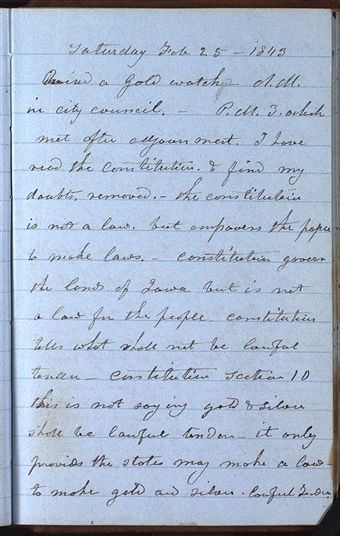 Saturday Feb 25 - 1843
a gold watch A.M.
in city council. - P.M. 3. o clock
met after adjournment. I have
read the constitution. & find my
doubts, removed. - the constitution
is not a law. but empowers the people
to make laws. - constitution govern
the lands of Iowa but is not
a law for the people constitution
tells what shall not be lawful
tender - constitution section 10
this is not saying gold & silver
shall be lawful tender - it only
provides the states may make a law
to make gold and silver. lawful tender